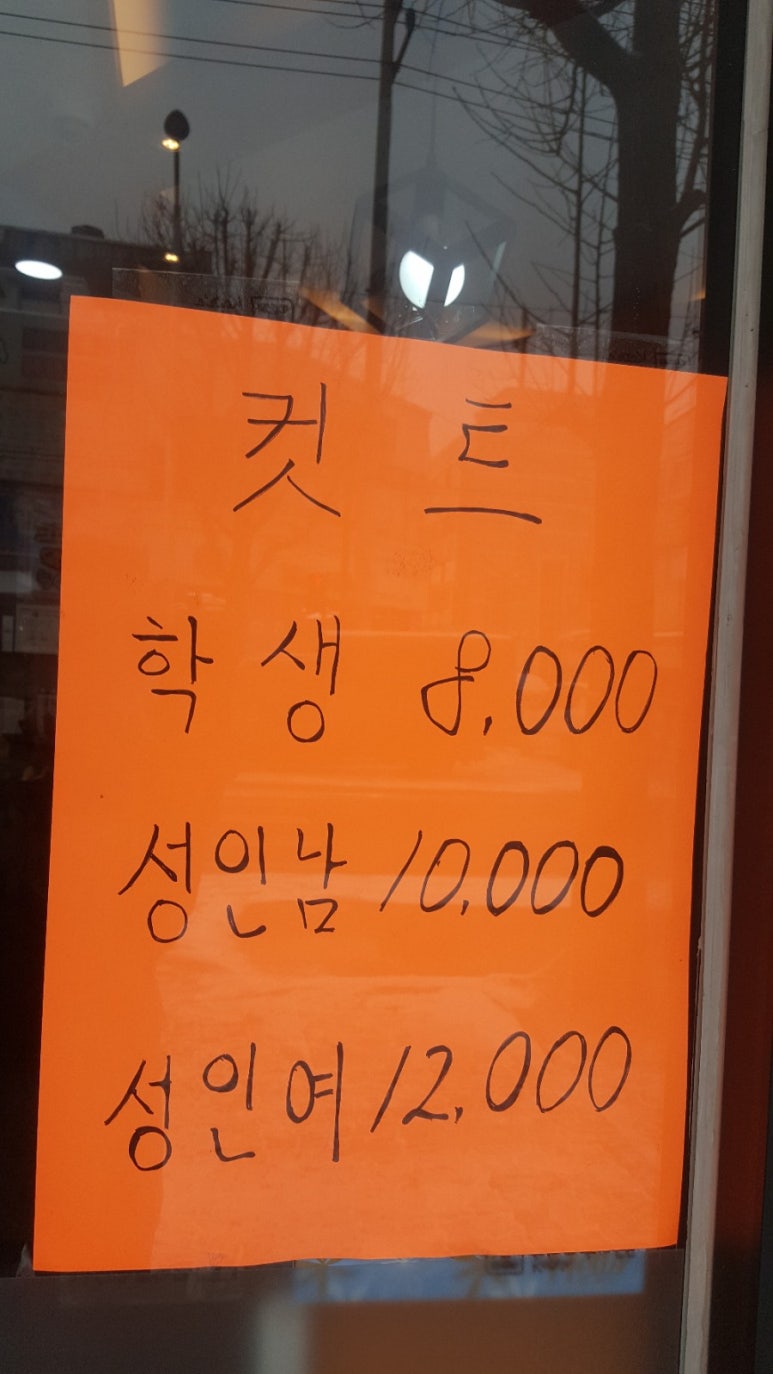 컷트
학생 8,000
성인남 10,000
성인여 12,000